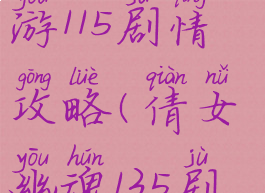 yóu jù qíng
游115剧情
gōng lüè qiàn nǚ
攻略(倩女
yōu hún jù
幽魂135剧